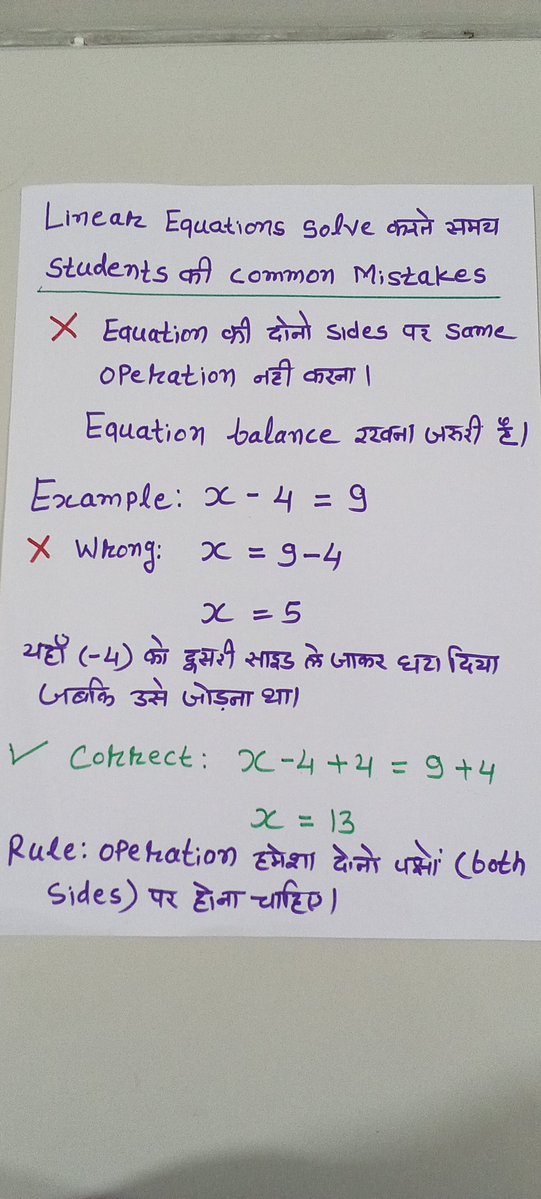 Linear Equations solve करते समय
Students की common Mistakes
✗ Equation की दोनो sides पर same
operation नही करना।
Equation balance रखना जरुरी है।
Example: x - 4 = 9
✗ Wrong: x = 9-4
x = 5
यहाँ (-4) को दूसरी साइड ले जाकर घटा दिया
जबकि उसे जोड़ना था।
✓ Correct: x-4+4 = 9+4
x = 13
Rule: operation हमेशा दोनो पक्षों (both
sides) पर होना चाहिए।